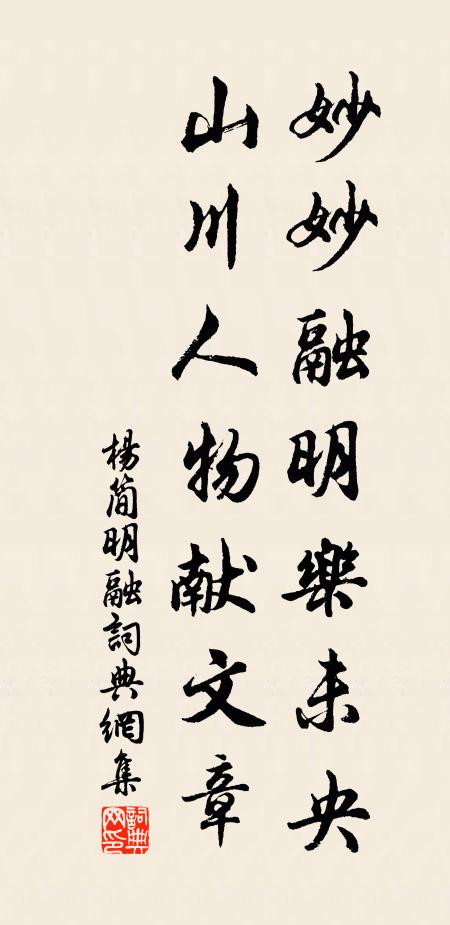 妙妙融明樂未央
山川人物献文章
楊简明融詞典網集
詞典网印